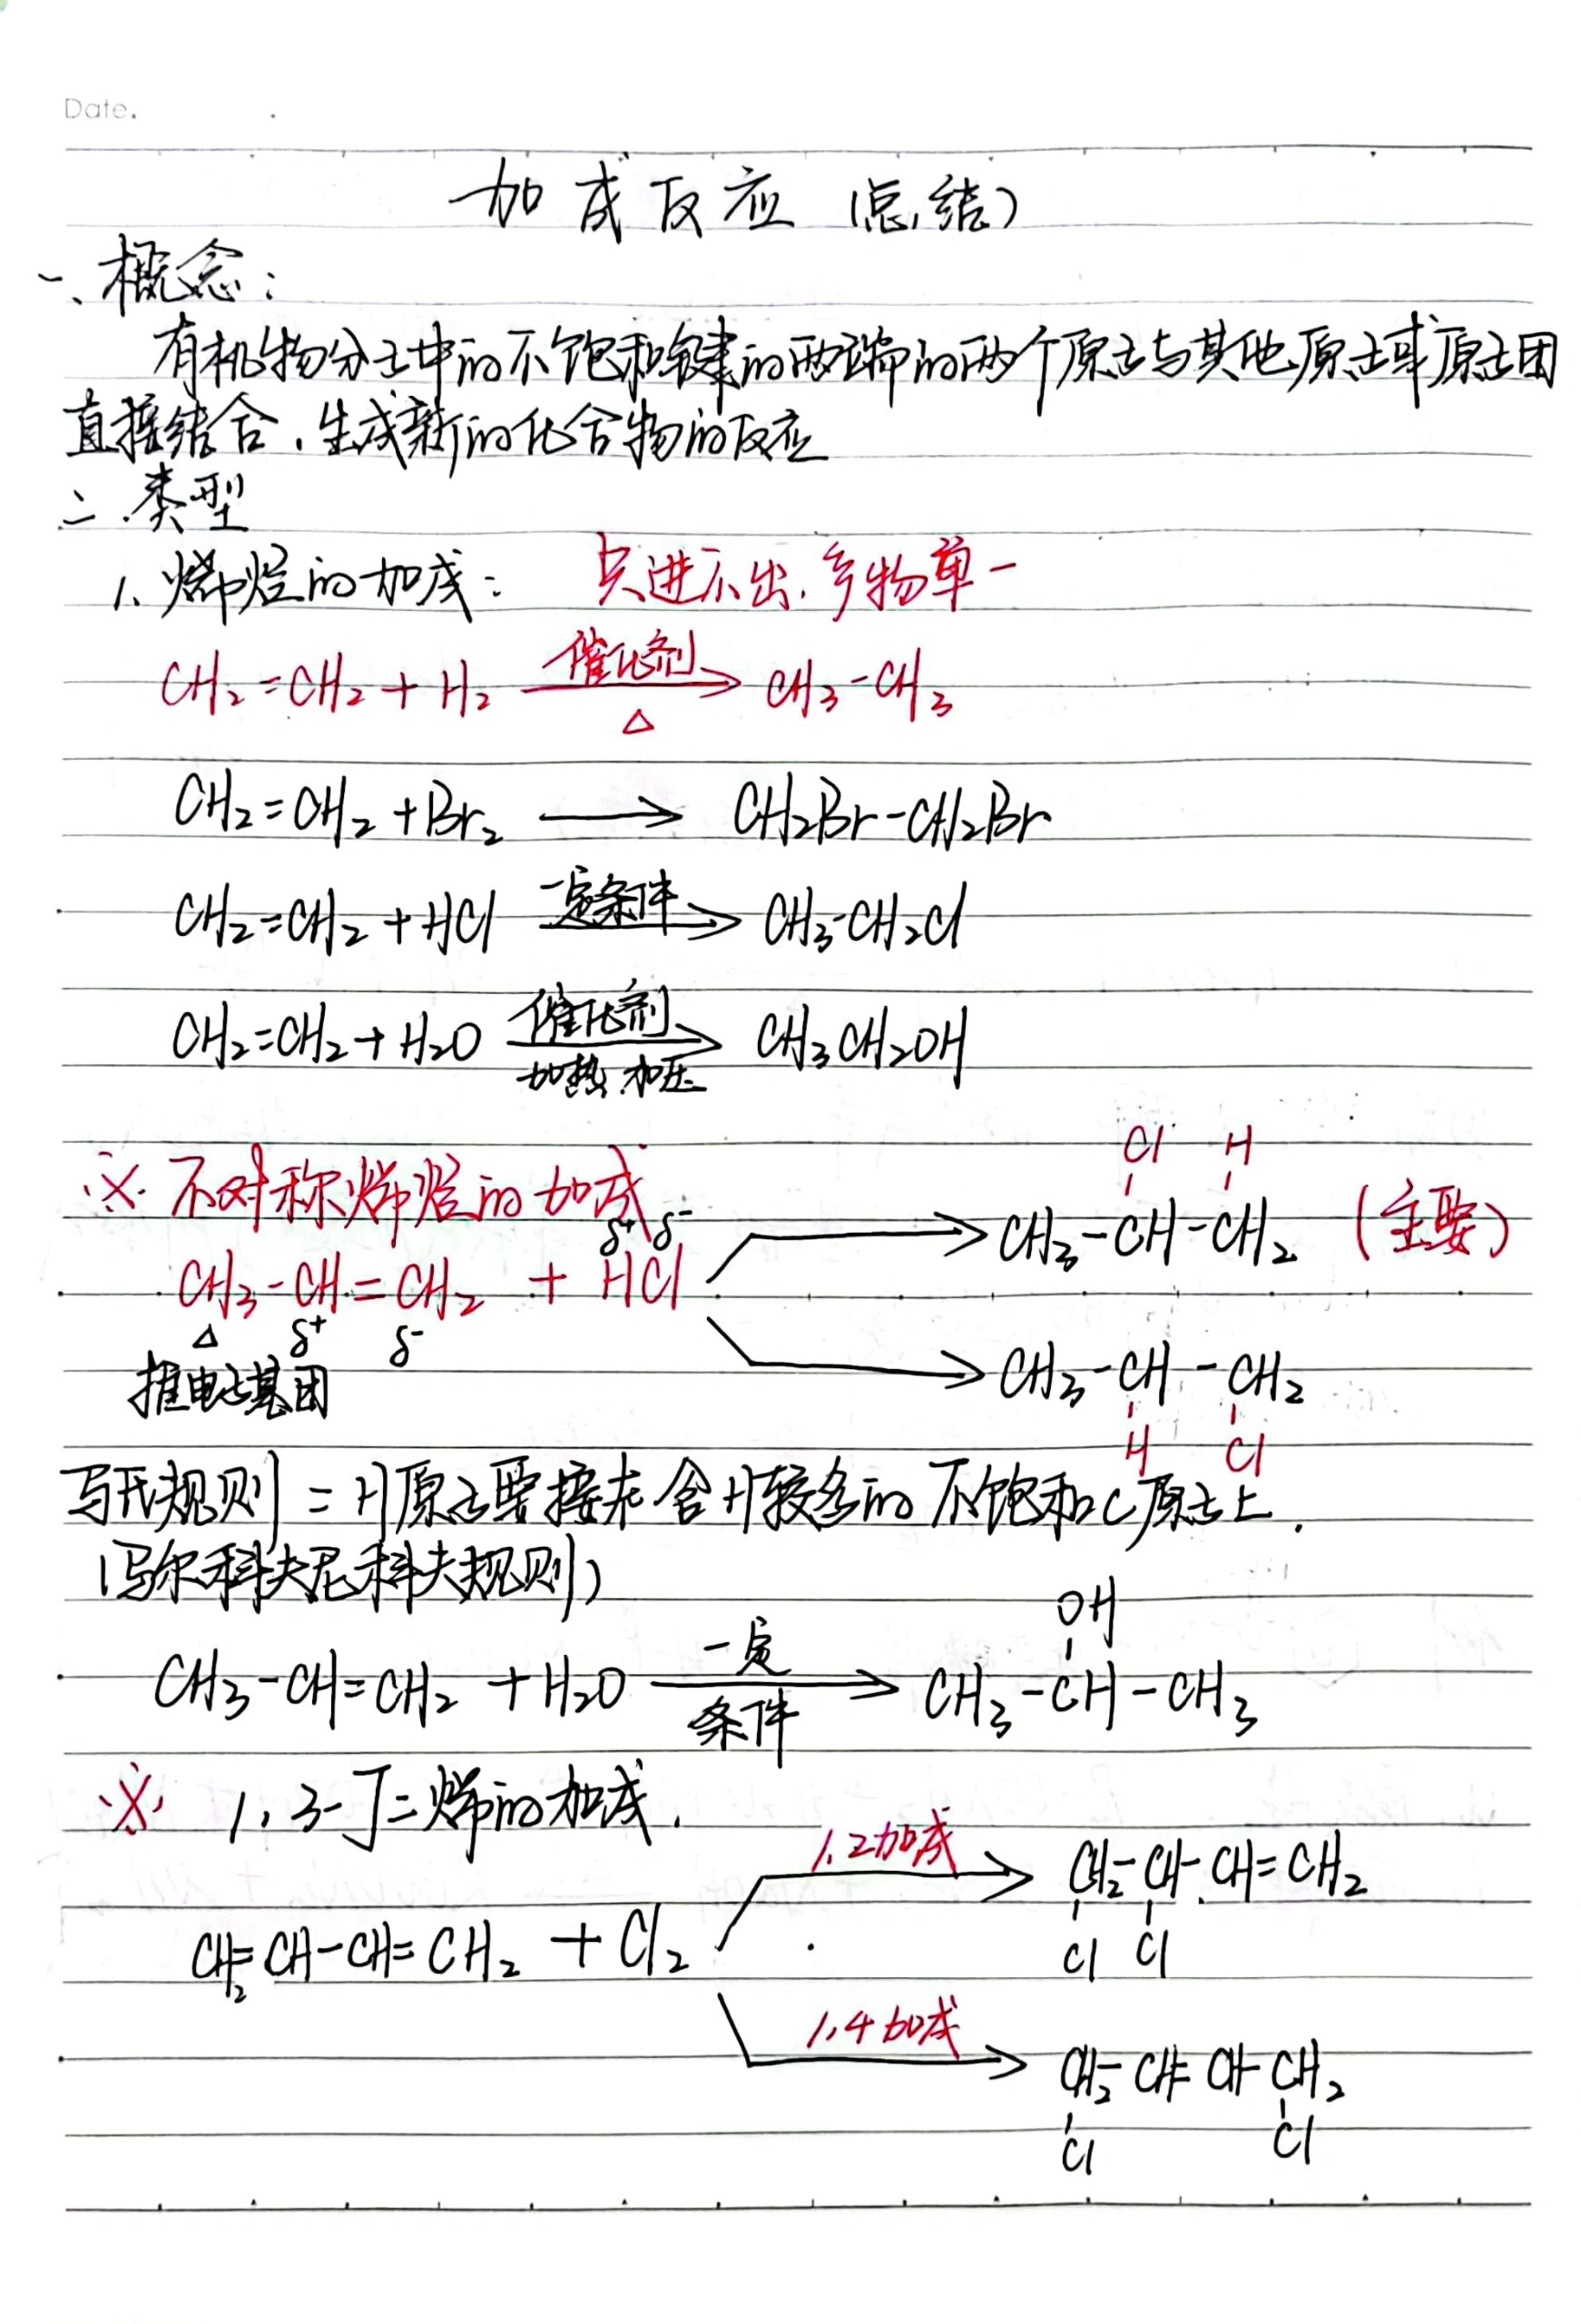 Date.
加成反应（总结）
一、概念：
有机物分子中的不饱和键的两端的两个原子与其他原子或原子团
直接结合，生成新的化合物的反应
二、类型
1、烯烃的加成： 只进不出，产物单一
CH₂=CH₂ + H₂ 催化剂 → △ CH₃-CH₃
CH₂=CH₂ + Br₂ → CH₂Br-CH₂Br
CH₂=CH₂ + HCl 一定条件 → CH₃-CH₂Cl
CH₂=CH₂ + H₂O 催化剂 → 加热、加压 CH₃CH₂OH
Cl H
※ 不对称烯烃的加成
δ⁺ δ⁻ → CH₃-CH-CH₂ （主要）
CH₃-CH=CH₂ + HCl
△ δ⁺ δ⁻ → CH₃-CH-CH₂
推电子基团
H Cl
马氏规则 = H原子要接在含H较多的不饱和C原子上．
（马尔科夫尼科夫规则）
OH
CH₃-CH=CH₂ + H₂O 一定 → 条件 CH₃-CH-CH₃
※ 1,3-丁二烯的加成．
1,2加成 → CH₂-CH-CH=CH₂
Cl Cl
CH₂=CH-CH=CH₂ + Cl₂
1,4加成 → CH₂-CH=CH-CH₂
Cl Cl